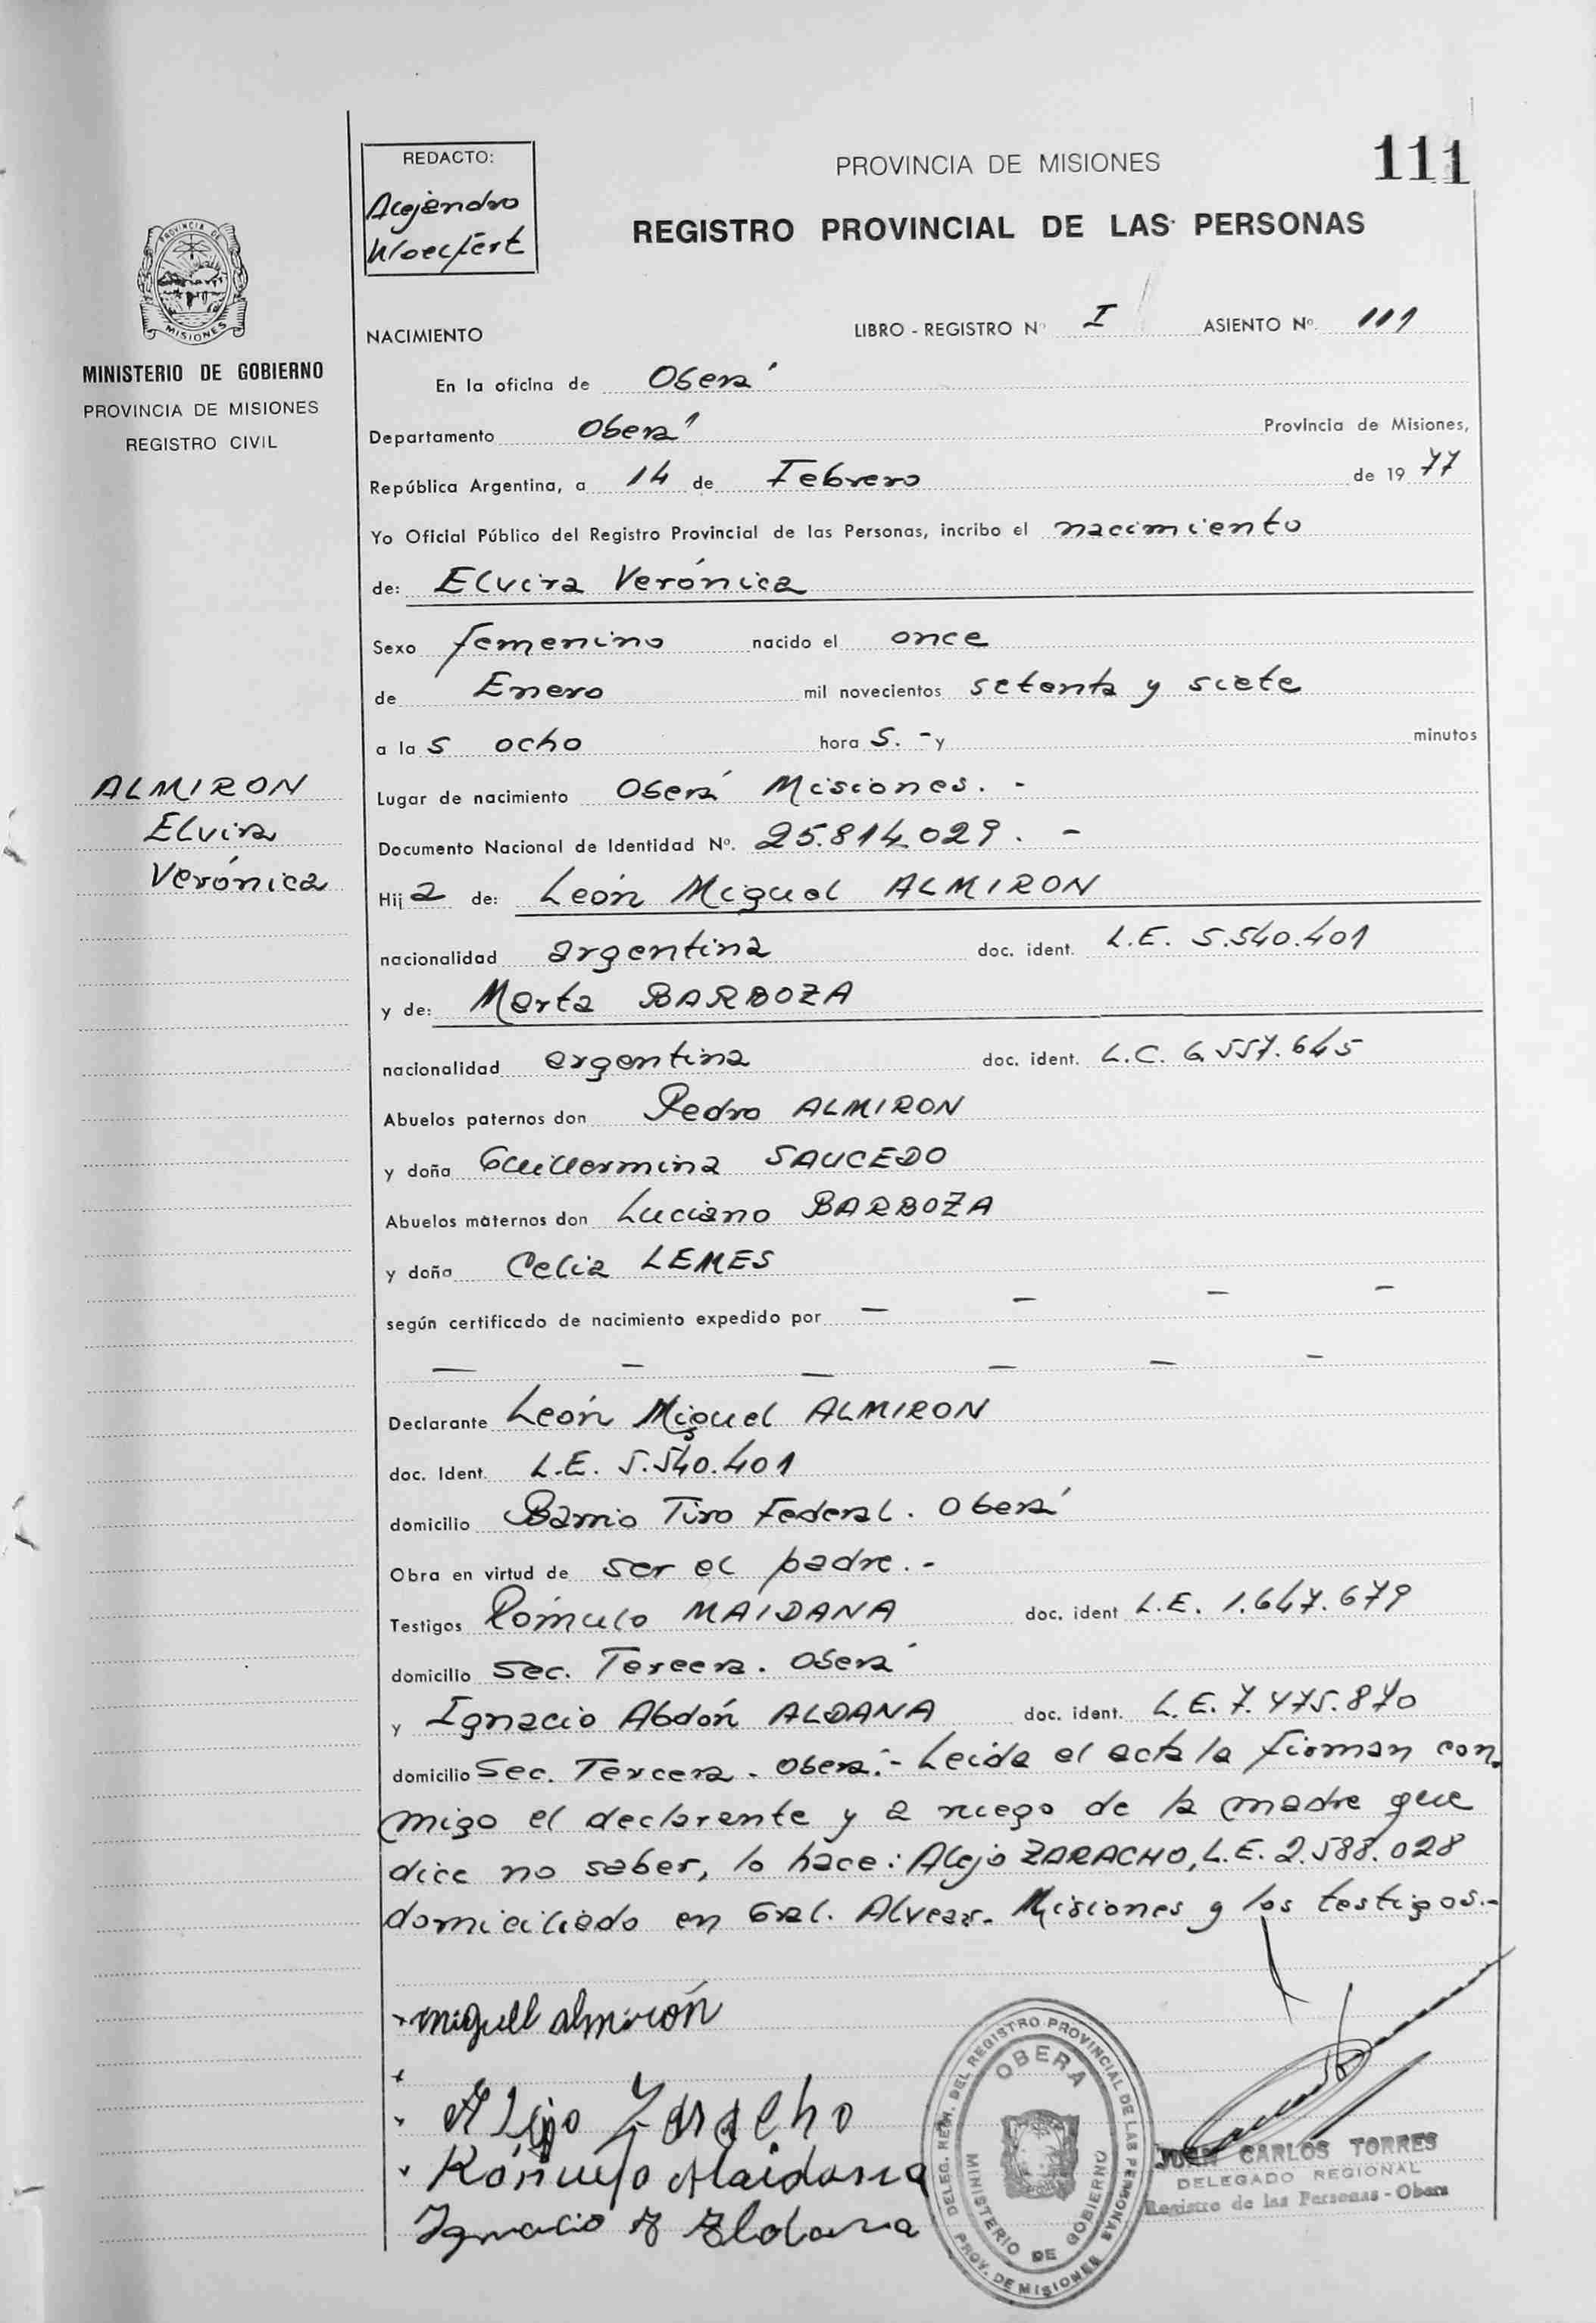 REDACTO:
Alejandro
Woelfert
PROVINCIA DE MISIONES
111
REGISTRO PROVINCIAL DE LAS PERSONAS
PROVINCIA DE
MISIONES
MINISTERIO DE GOBIERNO
PROVINCIA DE MISIONES
REGISTRO CIVIL
NACIMIENTO LIBRO - REGISTRO Nº I ASIENTO Nº. 111
En la oficina de Oberá
Departamento Oberá Provincia de Misiones,
República Argentina, a 14 de Febrero de 19 77
Yo Oficial Público del Registro Provincial de las Personas, incribo el nacimiento
de: Elvira Verónica
Sexo femenino nacido el once
de Enero mil novecientos setenta y siete
a la s ocho hora s. - y minutos
ALMIRON
Elvira
Verónica
Lugar de nacimiento Oberá Misiones. -
Documento Nacional de Identidad Nº. 25.814.029. -
Hij a de: León Miguel ALMIRON
nacionalidad argentina doc. ident. L.E. 5.540.401
y de: Marta BARBOZA
nacionalidad argentina doc. ident. L.C. 6.557.645
Abuelos paternos don Pedro ALMIRON
y doña Guillermina SAUCEDO
Abuelos maternos don Luciano BARBOZA
y doña Celia LEMES
según certificado de nacimiento expedido por — — — —
— — — — — —
Declarante León Miguel ALMIRON
doc. Ident. L.E. 5.540.401
domicilio Barrio Tiro Federal. Oberá
Obra en virtud de ser el padre. -
Testigos Rómulo MAIDANA doc. ident L.E. 1.647.679
domicilio Sec. Tercera. Oberá
y Ignacio Abdón ALDANA doc. ident. L.E. 7.475.870
domicilio Sec. Tercera - Oberá.- Leida el acta la firman con
migo el declarante y a ruego de la madre que
dice no saber, lo hace: Alejo ZARACHO, L.E. 2.588.028
domiciliado en Gral. Alvear. Misiones y los testigos.-
miguell almirón
Alejo Zaracho
Rómulo Maidana
Ignacio A Aldana
DELEG. REG. DEL REGISTRO PROVINCIAL DE LAS PERSONAS
OBERA
MINISTERIO DE GOBIERNO
PROV. DE MISIONES
JUAN CARLOS TORRES
DELEGADO REGIONAL
Registro de las Personas - Obera